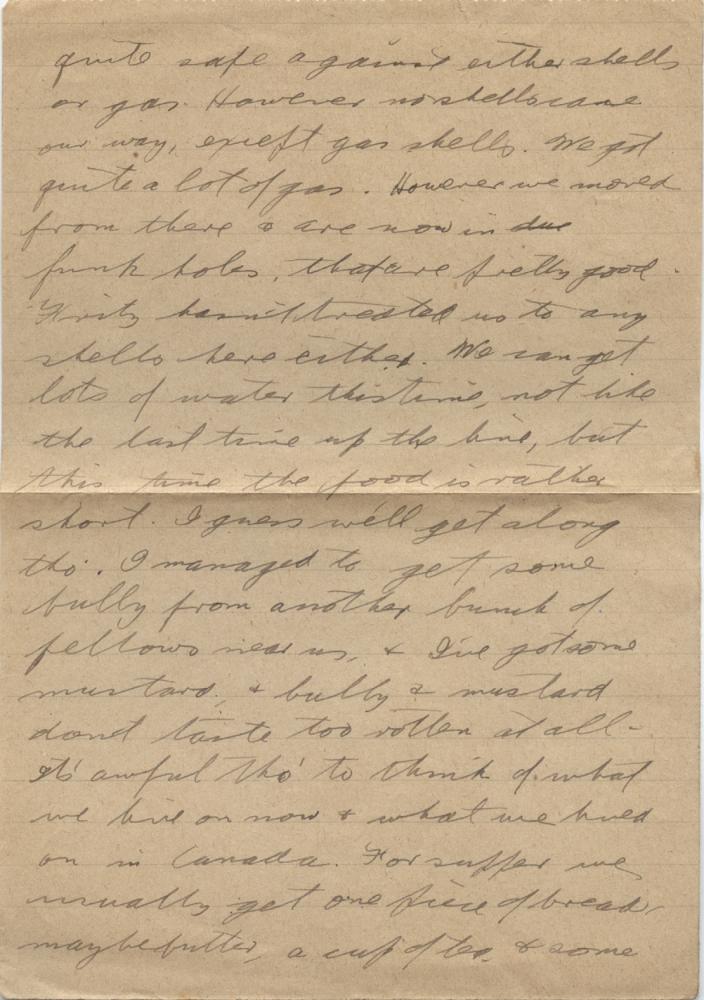 quite safe against either shells
or gas. However no shells came
our way, except gas shells. We got
quite a lot of gas. However we moved
from there & are now in
funk holes, that are pretty good.
Fritz hasn't treated us to any
shells here either. We can get
lots of water this time, not like
the last time up the line, but
this time the food is rather
short. I guess we'll get along
tho'. I managed to get some
bully from another bunch of
fellows near us, & I've got some
mustard, & bully & mustard
don't taste too rotten at all-
It's awful tho' to think of what
we live on now & what we lived
on in Canada. For supper we
usually get one piece of bread,
maybe butter, a cup of tea, & some